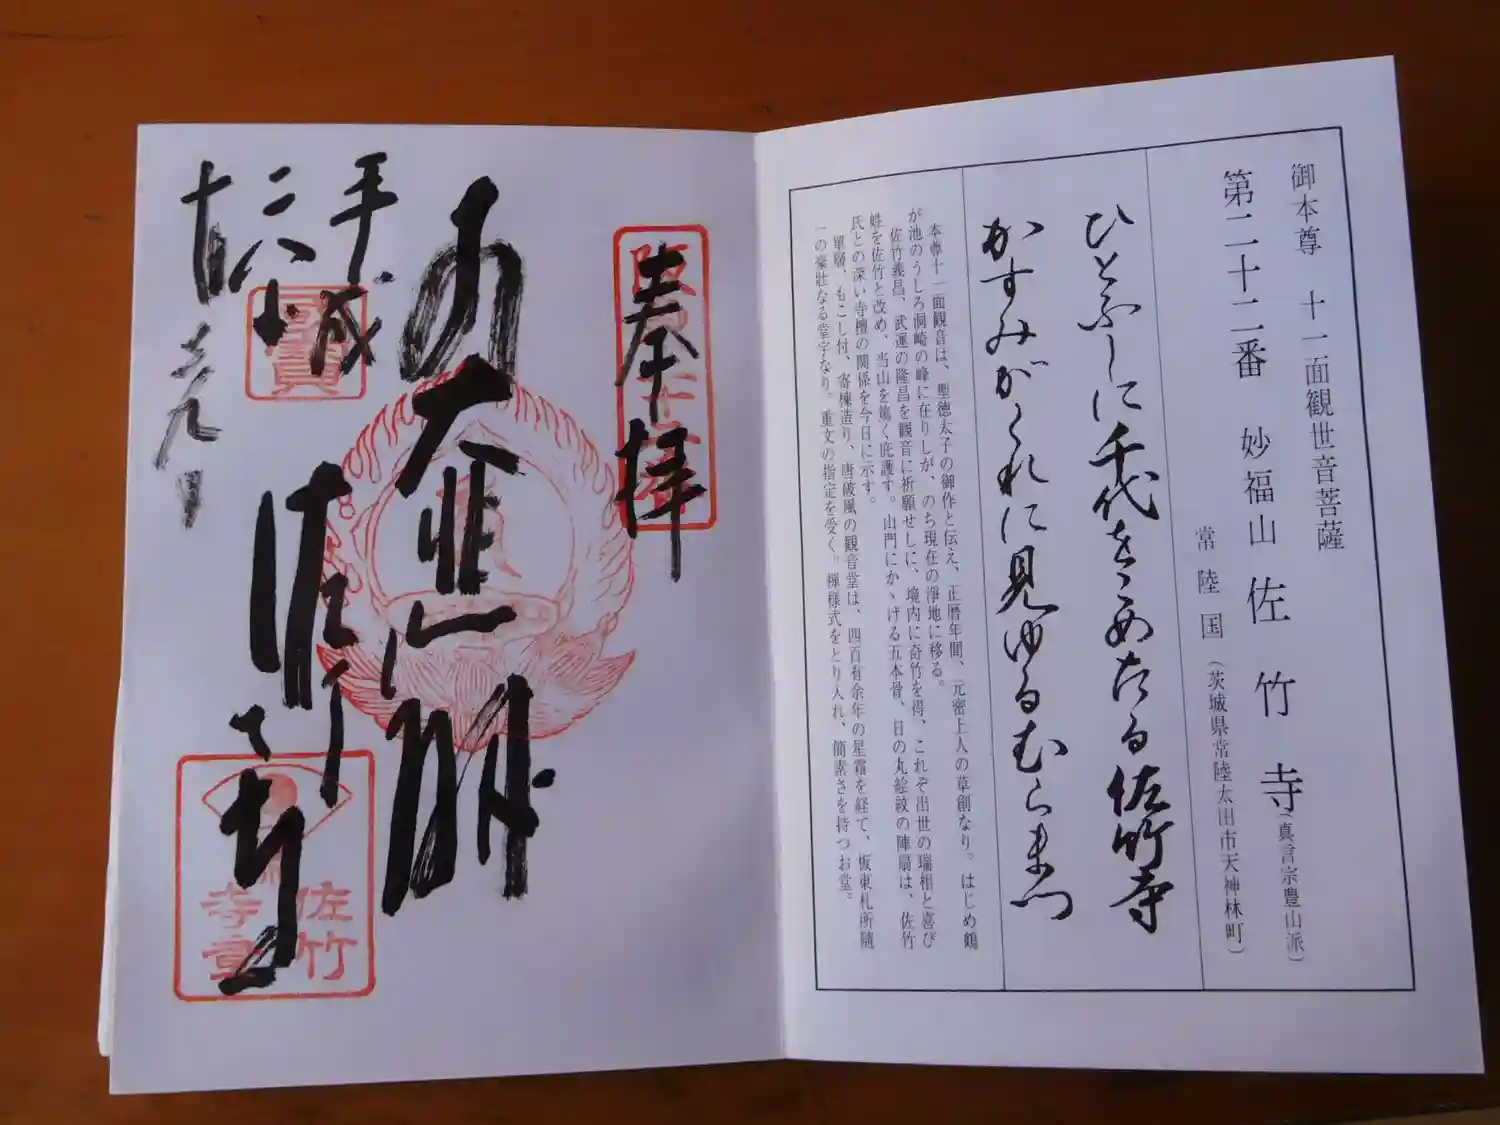 御本尊 十一面観世音菩薩
第二十二番 妙福山 佐竹寺(真言宗豊山派)
常陸国(茨城県常陸太田市天神林町)
ひとふしに千代をこめたる佐竹寺
かすみがくれに見ゆるむらまつ
本尊十一面観音は、聖徳太子の御作と伝え、正暦年間、元密上人の草創なり。はじめ鶴
が池のうしろ洞崎の峰に在りしが、のち現在の浄地に移る。
佐竹義昌、武運の隆昌を観音に祈願せしに、境内に奇竹を得、これぞ出世の瑞相と喜び
姓を佐竹と改め、当山を篤く庇護す。山門にかゝげる五本骨、日の丸絵紋の陣扇は、佐竹
氏との深い寺檀の関係を今日に示す。
単層、もこし付、寄棟造り、唐破風の観音堂は、四百有余年の星霜を経て、坂東札所随
一の豪壮なる堂宇なり。重文の指定を受く。禅様式をとり入れ、簡素さを持つお堂。
奉拝
大悲
佐竹寺
平成
佐竹
寺章